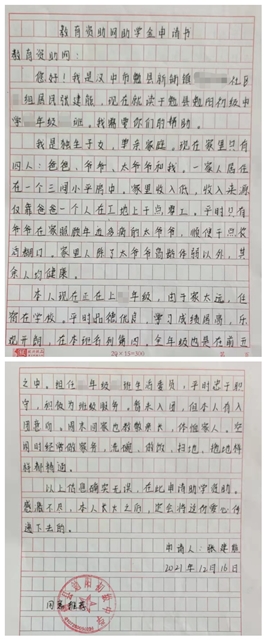 教育资助网助学金申请书
教育资助网:
您好!我是汉中市勉县新铺镇 亿B
组居民张建熊,现在就读于勉县勉阳初级中
学 年级 班。我需要你们的帮助。
我是独生子女,单亲家庭。现在家里只有
四人:爸爸,爷爷,太爷爷和我,一家人居住
在一个三间小平房中。家里收入低,收入来源
仅靠爸爸一个人在工地上干点零工。平时只有
爷爷在家照顾年迈多病的太爷爷,顺便干点农
活糊口。家里人除了太爷爷高龄体弱以外,其
余人均健康。
本人现正在上 年级,由于家太远,住
宿在学校。平时品德优良,学习成绩居高,乐
观开朗,在本班名列第四,全年级内是在前五
24×15=300
之中。担任 年级 班生活委员,平时忠于职
守,积极为班级服务,暂未入团,但本人有入
团意向。周末回家也勤勤恳恳,体谅家人,空
闲时经常做家务,洗碗,做饭,扫地,拖地样
样都精通。
以上信息确实无误,在此申请助学资助。
感激不尽,本人长大之后,定会将这份爱心传
递下去的。
申请人:张建
2021年12月16日
同意推荐